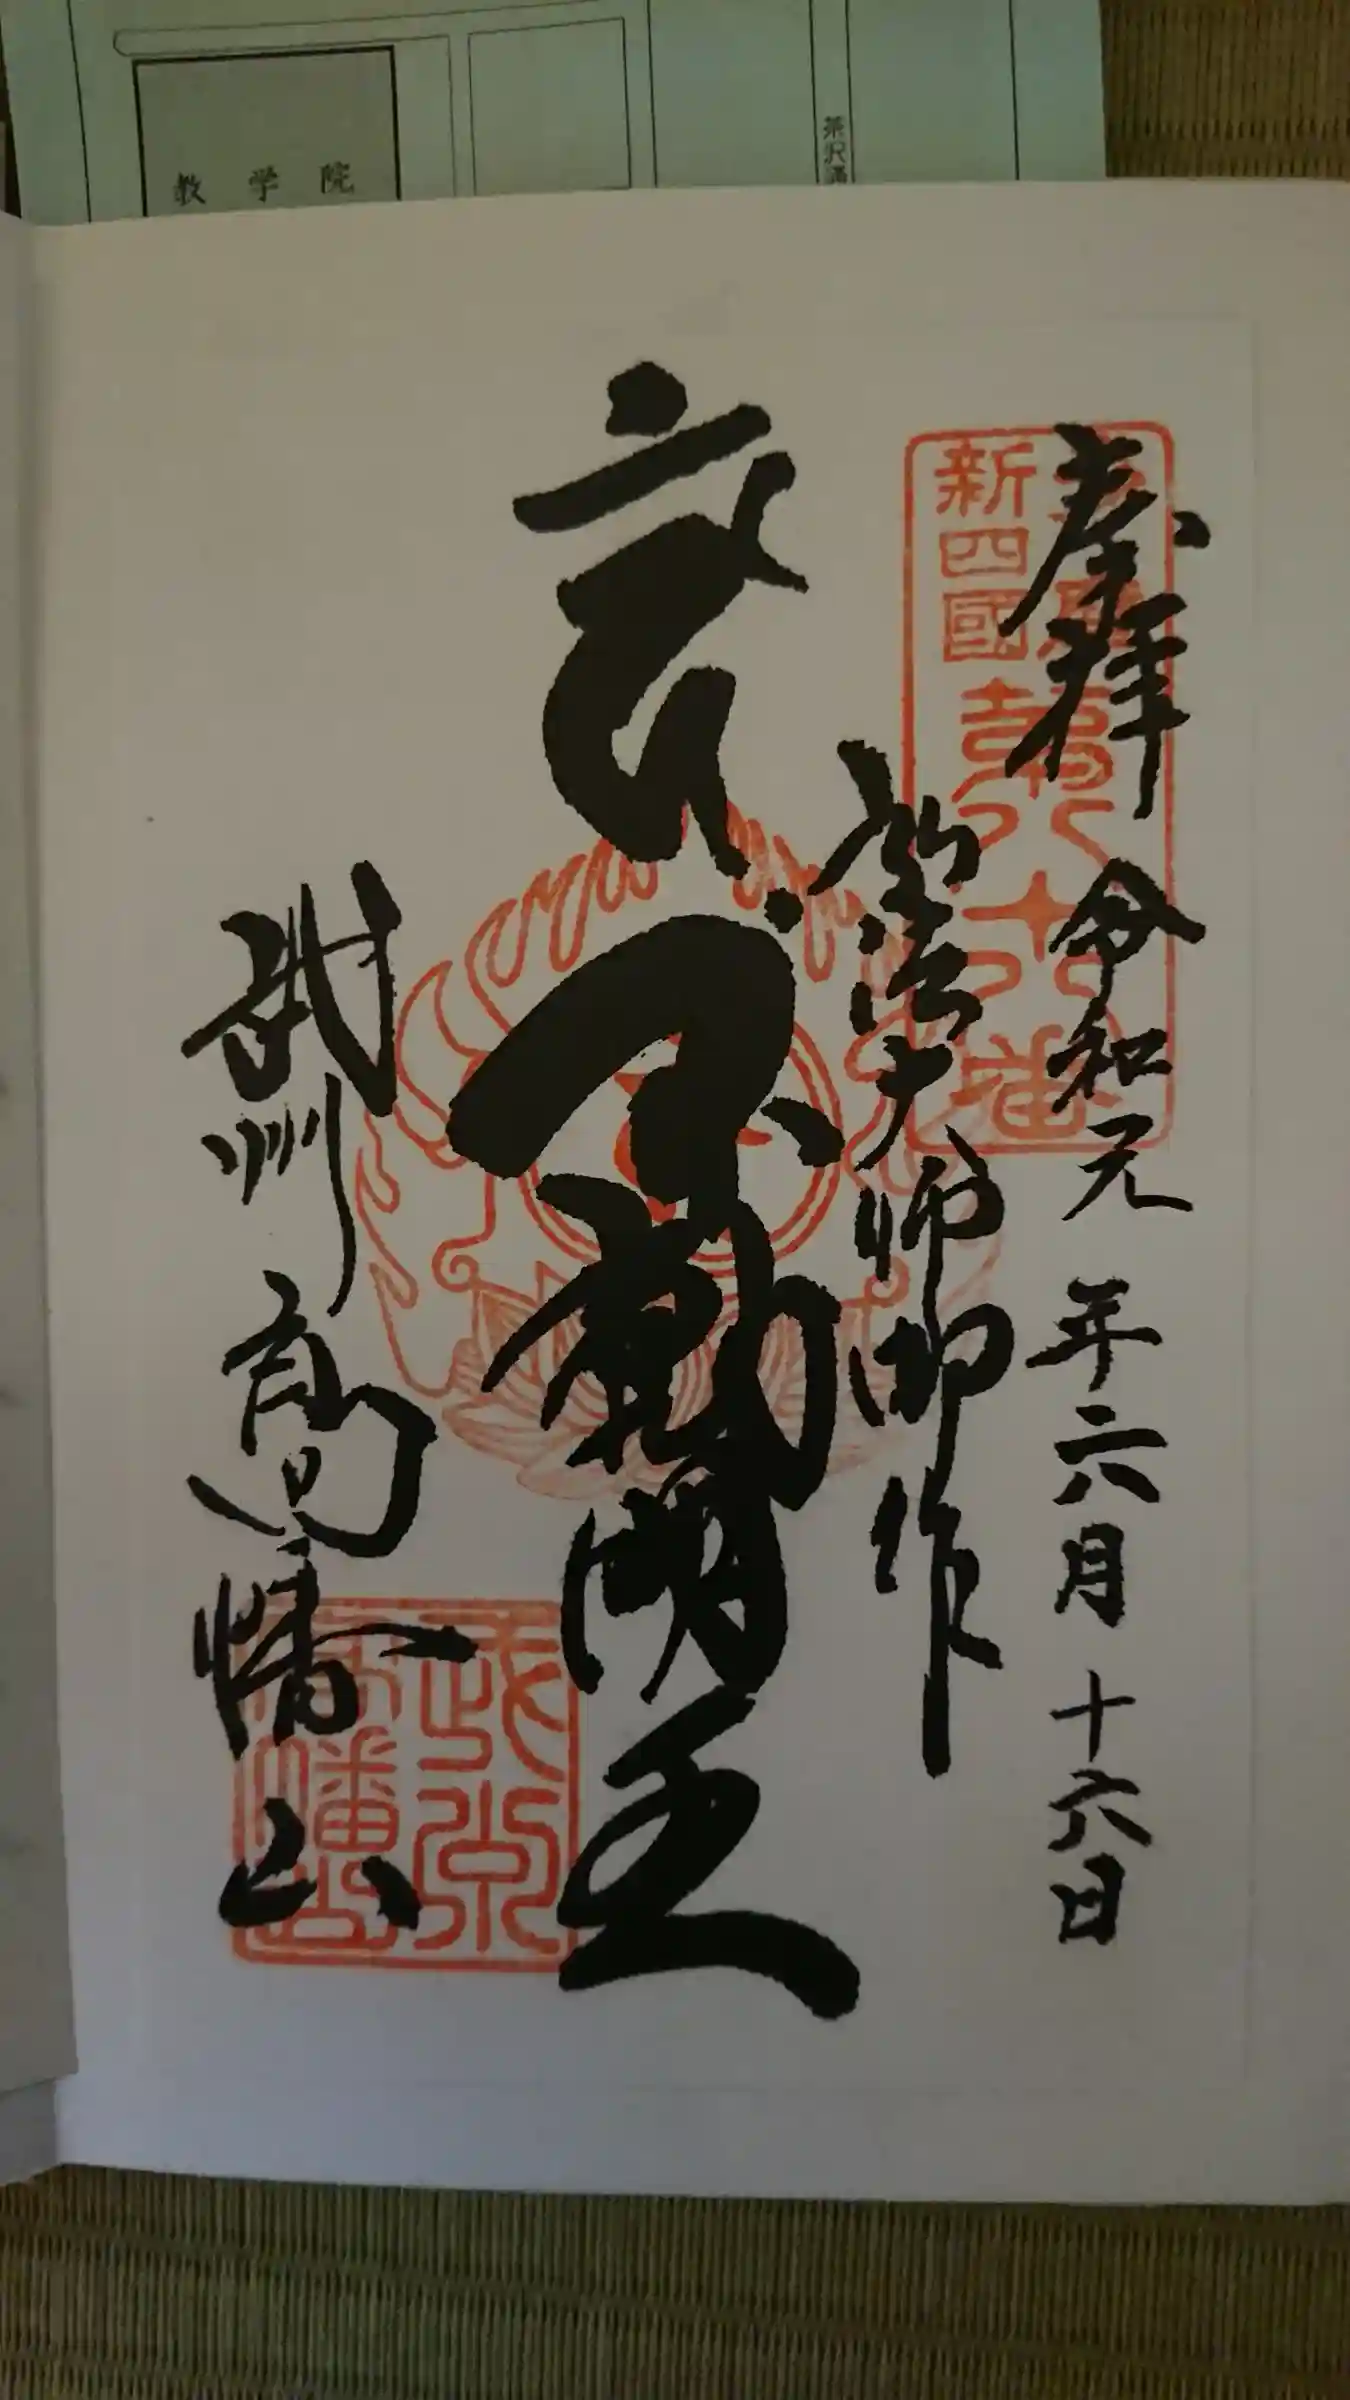 教学院
茶沢通
奉拝 令和元年六月十六日
新四國
第八十八番
弘法大師御作
不動明王
武州 高幡山